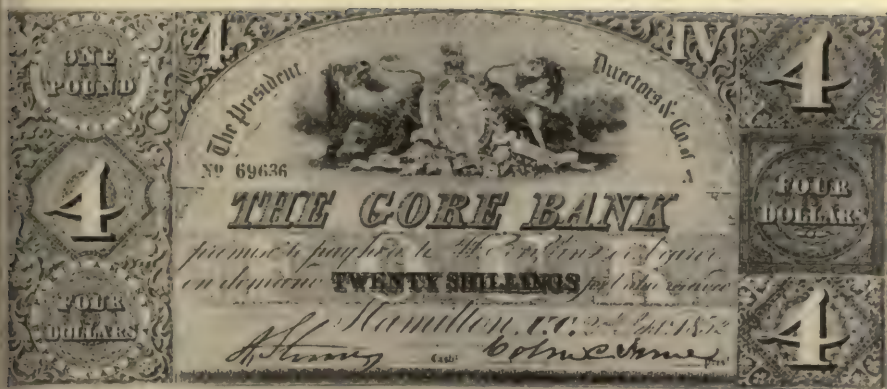 ONE
POUND
4
FOUR
DOLLARS
4
IV
The President, Directors & Co. of
No 69636
THE GORE BANK
promise to pay to or bearer
on demand TWENTY SHILLINGS value received
Hamilton, 
Cashr. Colin C Ferrie Prest.
4
FOUR
DOLLARS
4